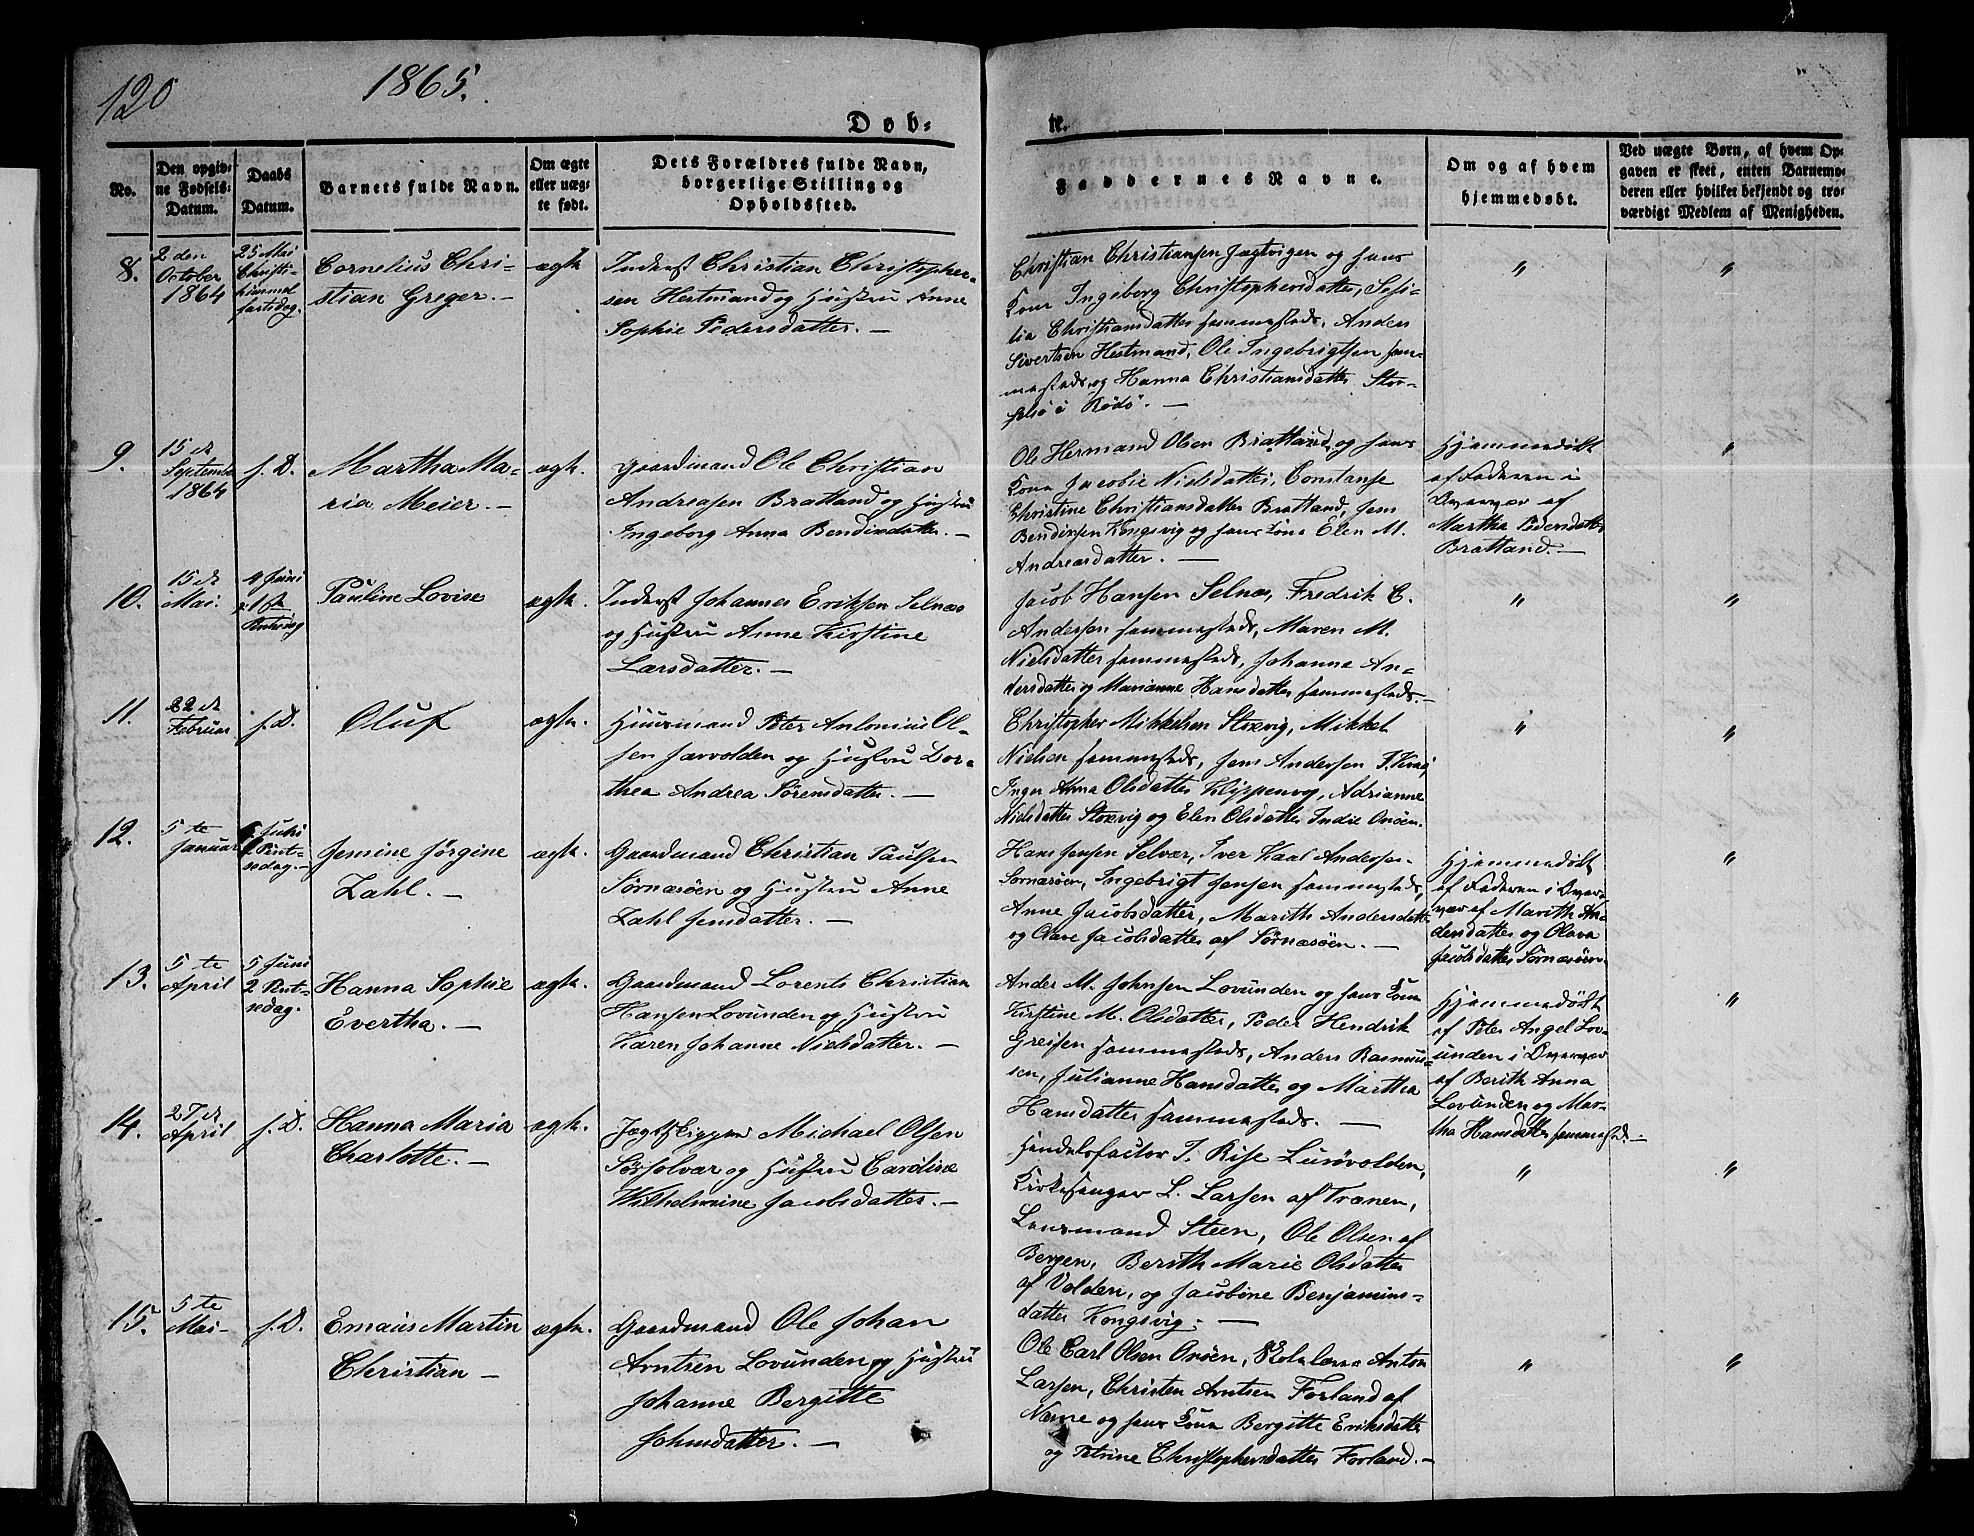 120
1865.
Døb-
te.
No.
Den opgiv-
ne Fødsels-
Datum.
Daabs
Datum.
Barnets fulde Navn.
Om ægte
eller uæg-
te født.
Dets Forældres fulde Navn,
borgerlige Stilling og
Opholdssted.
Faddernes Navne.
Om og af hvem
hjemmedøbt.
Ved uægte Børn, af hvem Op-
gaven er skeet, enten Barnemo-
deren eller hvilket bekjendt og tro-
værdigt Medlem af Menigheden.
8.
2den
October
1864
25 Mai
Christi-
himmel
fartsdag.
Cornelius Chri-
stian Greger. -
ægte
Inderst Christian Christopher-
sen Hestmand og Hustru Anne
Sophie Pedersdatter. -
Christian Christiansen Jægtvigen og hans
Kone Ingeborg Christophersdatter, Sesi-
lia Christiansdatter sammesteds, Anders
Sivertsen Hestmand, Ole Ingebrigtsen sam-
mesteds, og Hanna Christiansdatter Stor-
selsø i Rødø. -
"
"
9.
15de
September
1864
s. D.
Martha Ma-
ria Meier. -
ægte.
Gaardmand Ole Christian
Andreasen Bratland og Hustru
Ingeborg Anna Bendixdatter. -
Ole Hermand Olsen Bratland, og hans
Kone Jacobie Nielsdatter, Constanse
Christine Christiansdatter Bratland, Jens
Bendixsen Kongsvig og hans Kone Elen M.
Andreasdatter. -
Hjemmedøbt
af Faderen i
Overvær af
Martha Pedersdatter
Bratland. -
"
10.
15de
Mai.
4 Juni
1ste
Pintsedag
Pauline Lovise
ægte.
Inderst Johannes Eriksen Selnæs
og Hustru Anne Kirstine
Larsdatter. -
Jacob Hansen Selnæs, Fredrik C.
Andersen sammesteds, Maren M.
Nielsdatter sammesteds, Johanna An-
dersdatter og Marianne Hansdatter sammesteds. -
"
"
11.
22de
Februar
s. D.
Oluf
ægte.
Huusmand Peter Antonius Ol-
sen Jarvolden og Hustru Dor-
thea Andrea Sørensdatter. -
Christopher Mikkelsen Stokvig, Mikkel
Nielsen sammesteds, Jens Andersen
Inger Anna Olsdatter Klippenvog, Adrianne
Nielsdatter Stokvig og Elen Olsdatter Indre Onøen.
"
"
12.
5te
Januar
5 Juni
2 Pint-
sedag. -
Jensine Jørgine
Zahl. -
ægte.
Gaardmand Christian Paulsen
Sørnæsøen og Hustru Anne
Zahl Jensdatter. -
Hans Jensen Selvær, Iver Kaal Andersen
Sørnæsøen, Ingebrigt Jensen sammesteds,
Anne Jacobsdatter, Marith Andersdatter
og Olave Jacobsdatter af Sørnæsøen. -
Hjemmedøbt
af Faderen i Over-
vær af Marith An-
dersdatter og Olava
Jacobsdatter Sørnæsøen.
"
13.
5te
April
5 Juni
2 Pint-
sedag.
Hanna Sophie
Evertha. -
ægte.
Gaardmand Lorents Christian
Hansen Lovunden og Hustru
Karen Johanne Nielsdatter. -
Anders M. Johnsen Lovunden og hans Kone
Kirstine M. Olsdatter, Peder Hendrik
Greisen sammesteds, Anders Rasmus-
sen, Julianne Hansdatter og Martha
Hansdatter sammesteds. -
Hjemmedøbt
af Peter Angel Lov-
unden i Overvær
af Berith Anna
Lovunden og Mar-
tha Hansdatter sammesteds -
"
14.
27de
April
s. D.
Hanna Maria
Charlotte. -
ægte.
Jægtskipper Michael Olsen
Sørsolvær og Hustru Caroline
Wilhelmine Jacobsdatter. -
Handelsfactor J. Rise Lurøvolden,
Kirkesanger L. Larsen af Trænen,
Lensmand Steen, Ole Olsen af
Bergen, Berith Marie Olsdatter
af Volden, og Jacobine Benjamins-
datter Kongsvig. -
"
"
15.
5te
Mai -
s. D.
Emaus Martin
Christian -
ægte.
Gaardmand Ole Johan
Arntsen Lovunden og Hustru
Johanne Bergitte
Johnsdatter. -
Ole Carl Olsen Onøen, Skolelærer Anton
Larsen, Christen Arntsen Forland af
Næsne og hans Kone Bergitte Eriksdatter
og Petrine Christophersdatter Forland. -
"
"